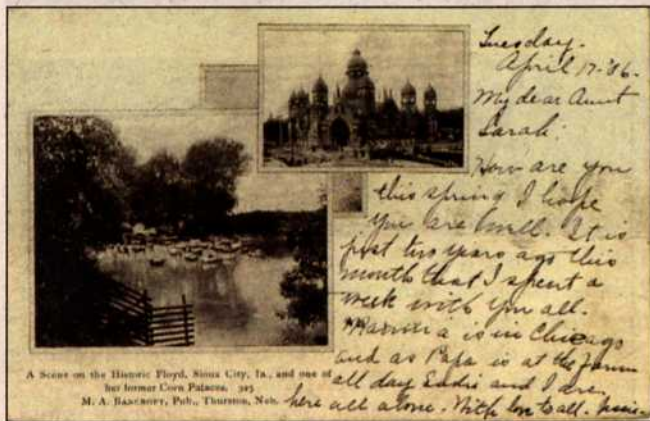 Tuesday.
April 17-'06.
My dear Aunt
Sarah:
How are you
this spring I hope
you are well. It is
just two years ago this
month that I spent a
week with you all.
is in Chicago
and as Papa is at the farm
all day and I are
here all alone. With love to all.
A Scene on the Historic Floyd, Sioux City, Ia., and one of
her former Corn Palaces. 325
M. A. BANCROFT, Pub., Thurston, Neb.